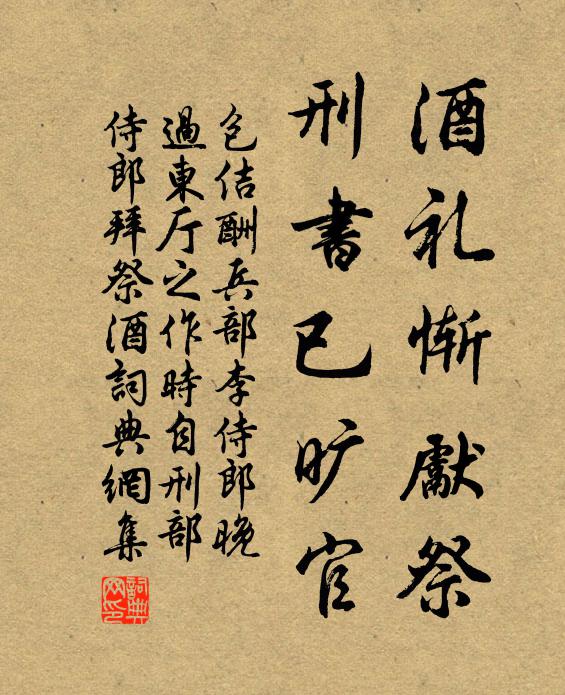 酒礼惭獻祭
刑書已旷官
包佶酬兵部李侍郎晚
過東厅之作時自刑部
侍郎拜祭酒詞典網集
詞典
网印